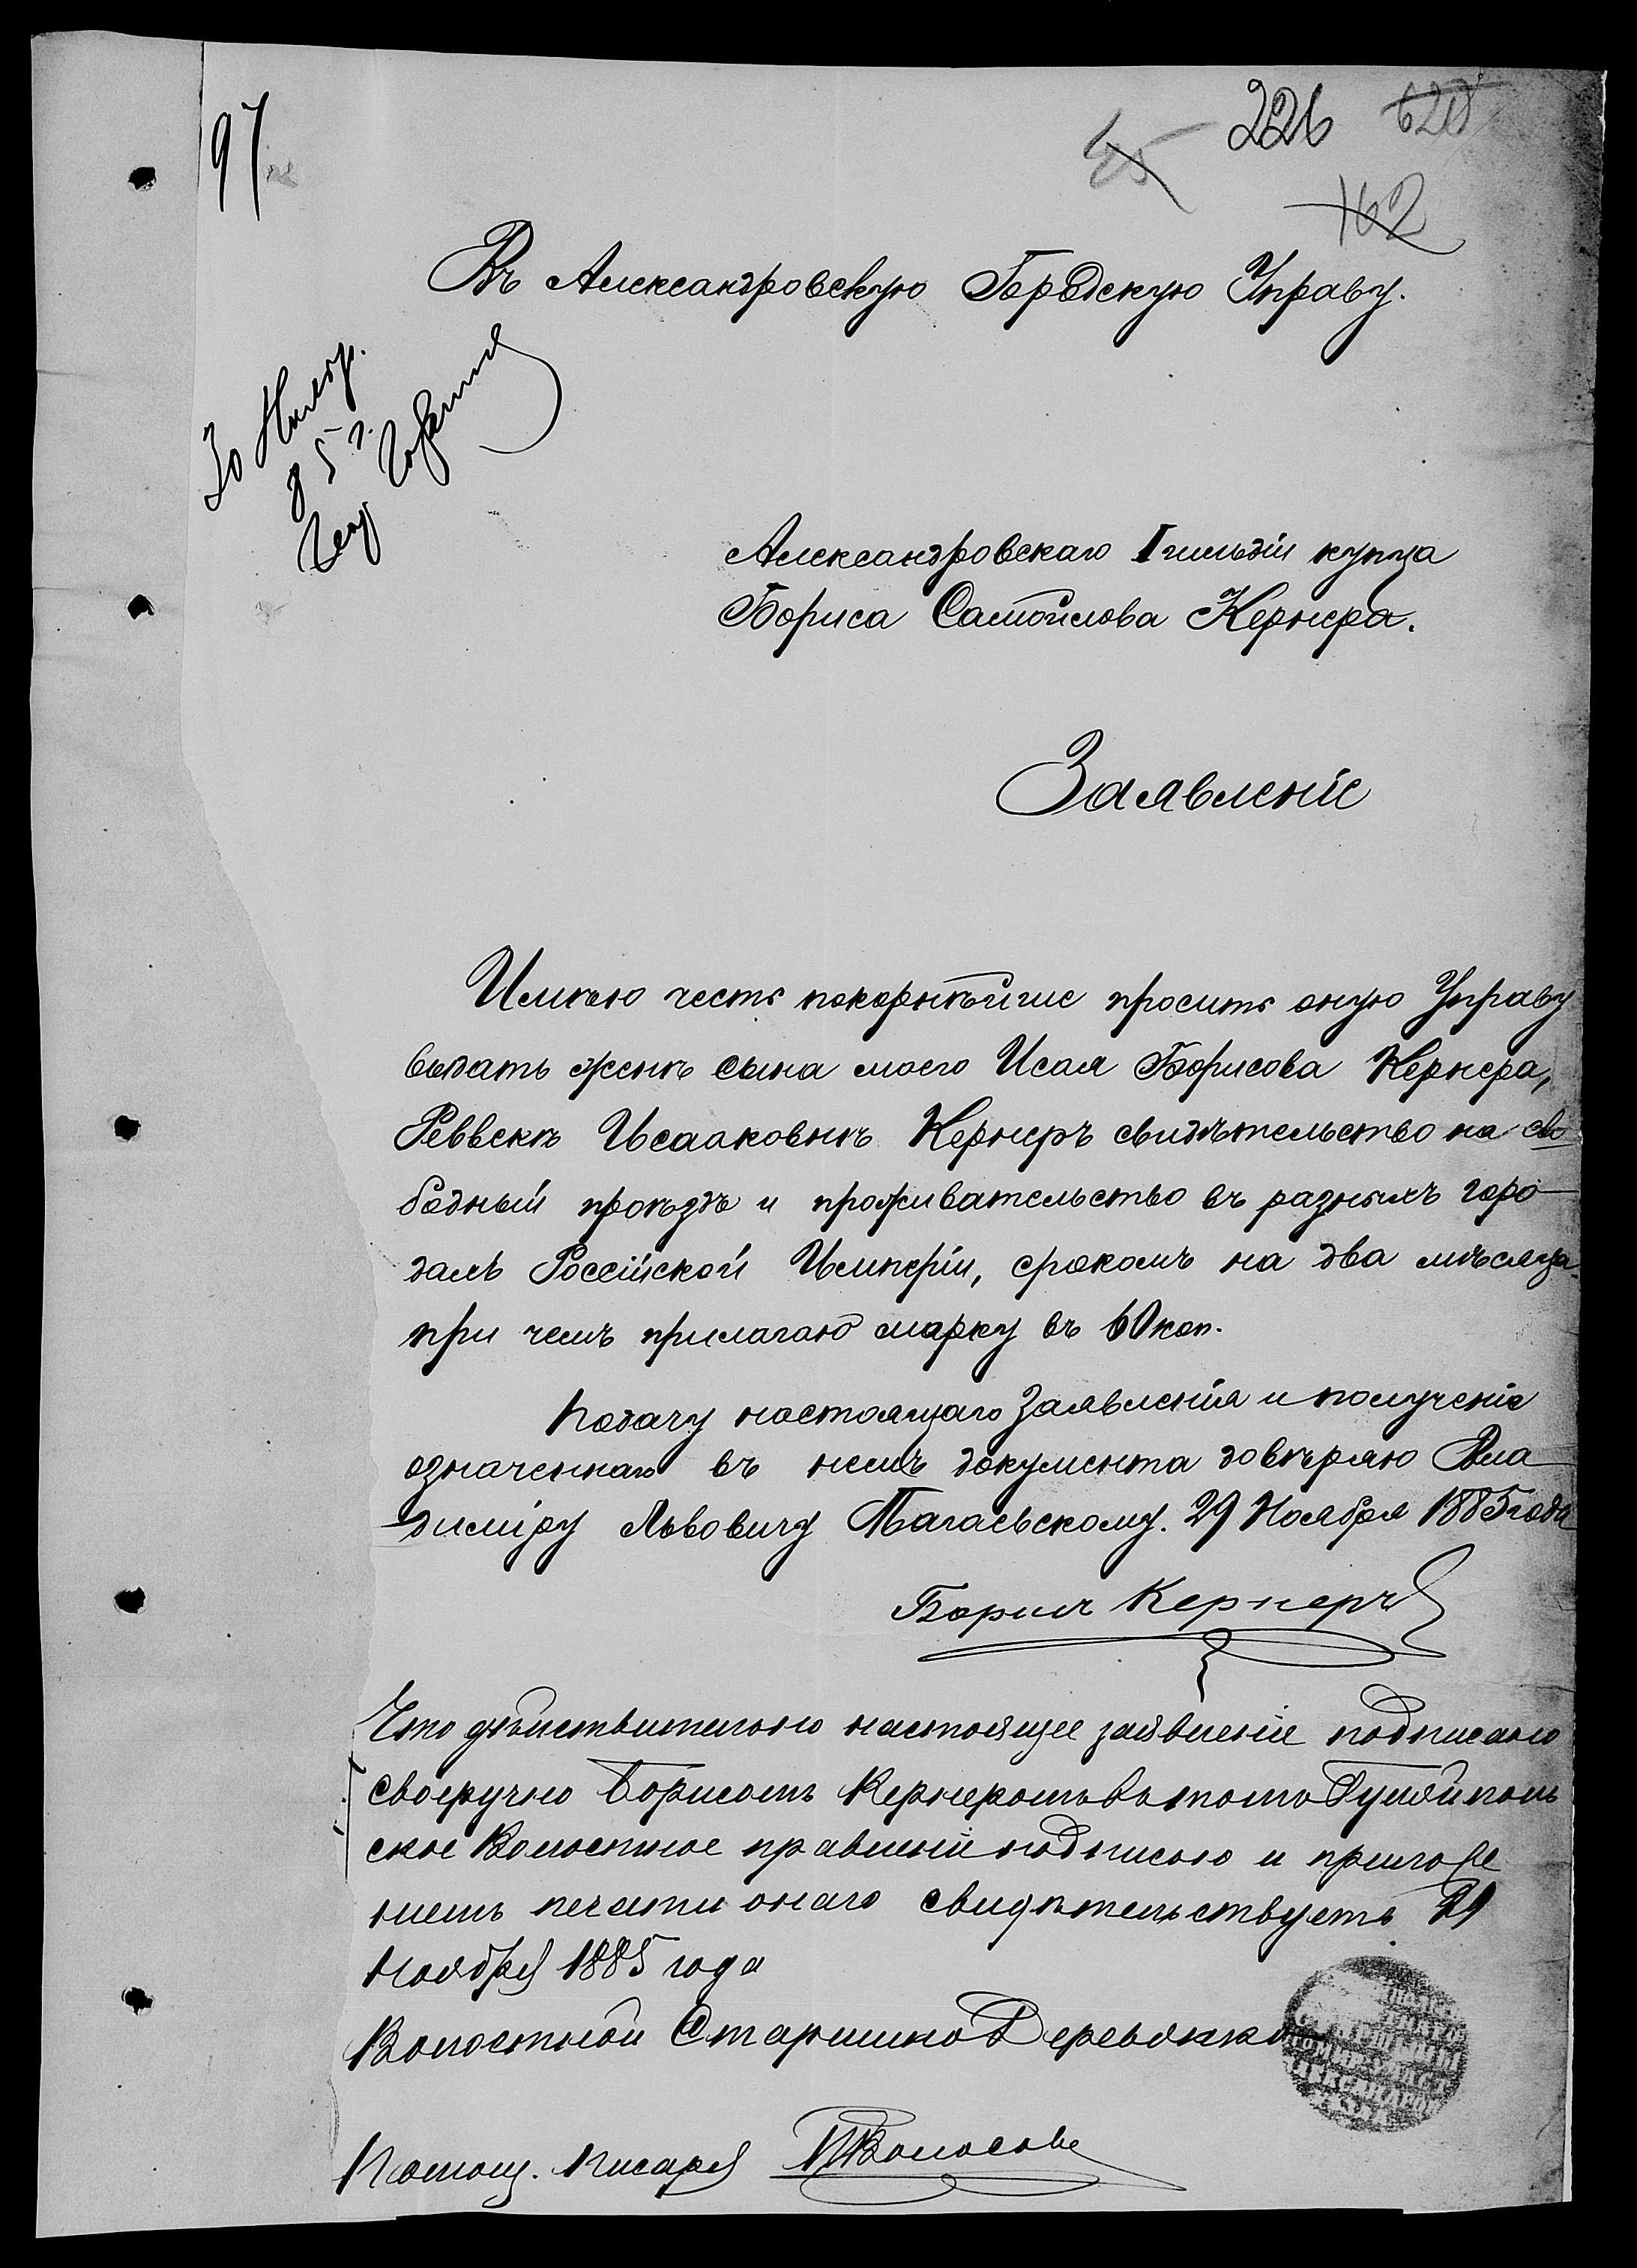 97
226
45
162
Въ Александровскую Городскую Управу.
30 Ноябр.
85 г.
Александровскаго I гильдіи купца
Бориса Самойлова Кернера.
Заявленіе
Имѣю честь покорнѣйше просить оную Управу
выдать женѣ сына моего Исая Борисова Кернера,
Реввекѣ Исааковнѣ Кернеръ свидѣтельство на сво
бодный проѣздъ и проживательство въ разныхъ горо
дахъ Россійской Имперіи, срокомъ на два мѣсяца
при чемъ прилагаю марку въ 60 коп.
Подачу настоящаго Заявленія и полученіе
означеннаго въ немъ документа довѣряю Вла
диміру Львовичу Тагальскому. 29 Ноября 1885 года
Борисъ Кернеръ
Что дѣйствительно настоящее заявленіе подписано
своеручно Борисомъ Кернеромъ въ томъ Гуляйполь
ское Волостное правленіе подписью и приложе
ніемъ печати онаго свидѣтельствуетъ 29
Ноября 1885 года
Волостной Старшина Деревянко
Помощ. Писаря Волосовъ